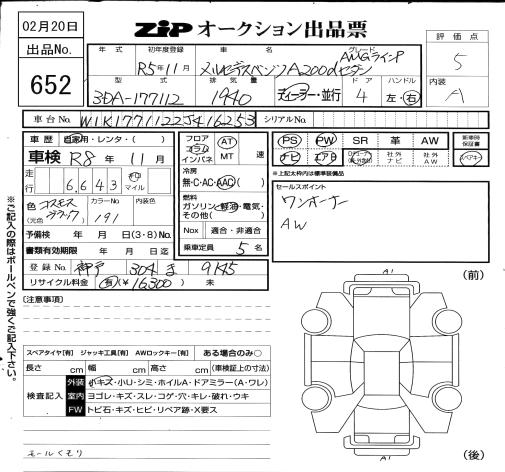 02月20日
ZiP オークション出品票
出品No.
652
年式
初年度登録 R5年11月
車名 メルセデスベンツA200dセダン
グレード AMGラインP
評価点 5
型式 3DA-177112
排気量 1940
ディーラー・並行
ドア 4
ハンドル 左・右
内装 A
車台No. W1K1771122J416253
シリアルNo.
車歴 自家用・レンタ・( )
車検 R8年11月
走行 6,643 キロ マイル
色 (元色) コスモスブラック
カラーNo 191
内装色
予備検 年 月 日(3・8)No.
書類有効期限 年 月 日迄
登録No. 神戸 304 ま 9145
リサイクル料金 有(¥16300) 未
フロア コラム インパネ
AT MT 速
冷房 無・C・AC・AAC( )
燃料 ガソリン・軽油・電気・その他( )
Nox 適合・非適合
乗車定員 5名
PS PW SR 革 AW
ナビ エアB 社外ナビ 社外AW
新車時保証書
スペアキー
*上記太枠内は標準装備品
セールスポイント
ワンオーナー
AW
※ご記入の際はボールペンで強くご記入下さい。
(注意事項)
スペアタイヤ[有] ジャッキ工具[有] AWロックキー[有] ある場合のみ○
長さ cm 幅 cm 高さ cm (車検証上の寸法)
検査記入
外装 小キズ・小U・シミ・ホイルA・ドアミラー(A・ワレ)
室内 ヨゴレ・キズ・スレ・コゲ・穴・キレ・破れ・ウキ
FW トビ石・キズ・ヒビ・リペア跡・X要ス
モールくもり
(前)
A1
A1
(後)